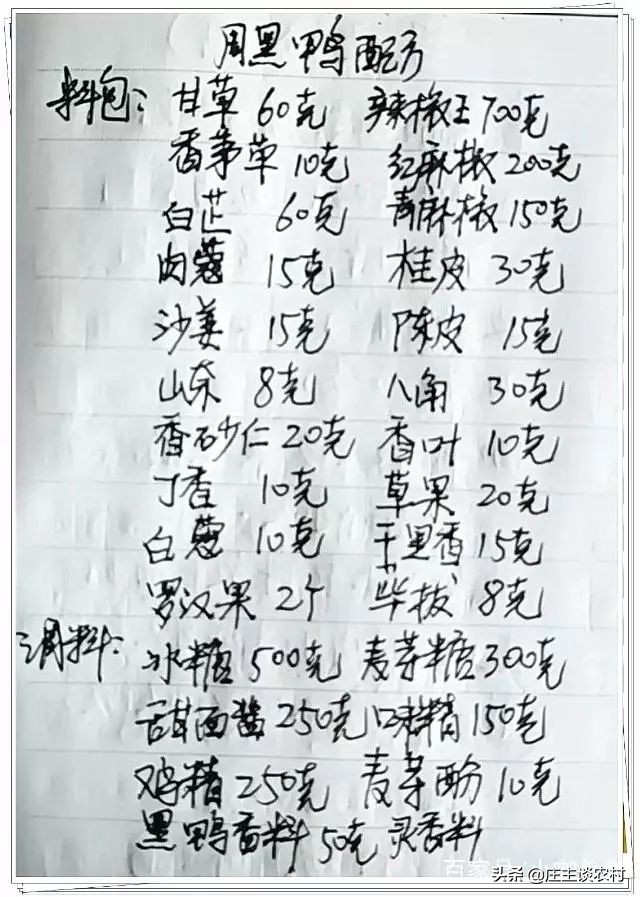 周黑鸭配方
料包: 甘草 60克 辣椒王 700克
香茅草 10克 红麻椒 200克
白芷 60克 青麻椒 150克
肉蔻 15克 桂皮 30克
沙姜 15克 陈皮 15克
山奈 8克 八角 30克
香砂仁 20克 香叶 10克
丁香 10克 草果 20克
白蔻 10克 千里香 15克
罗汉果 2个 毕拔 8克
调料: 冰糖 500克 麦芽糖 300克
甜面酱 250克 味精 150克
鸡精 250克 麦芽酚 10克
黑鸭香料 50克 灵香料
头条 @庄主谈农村